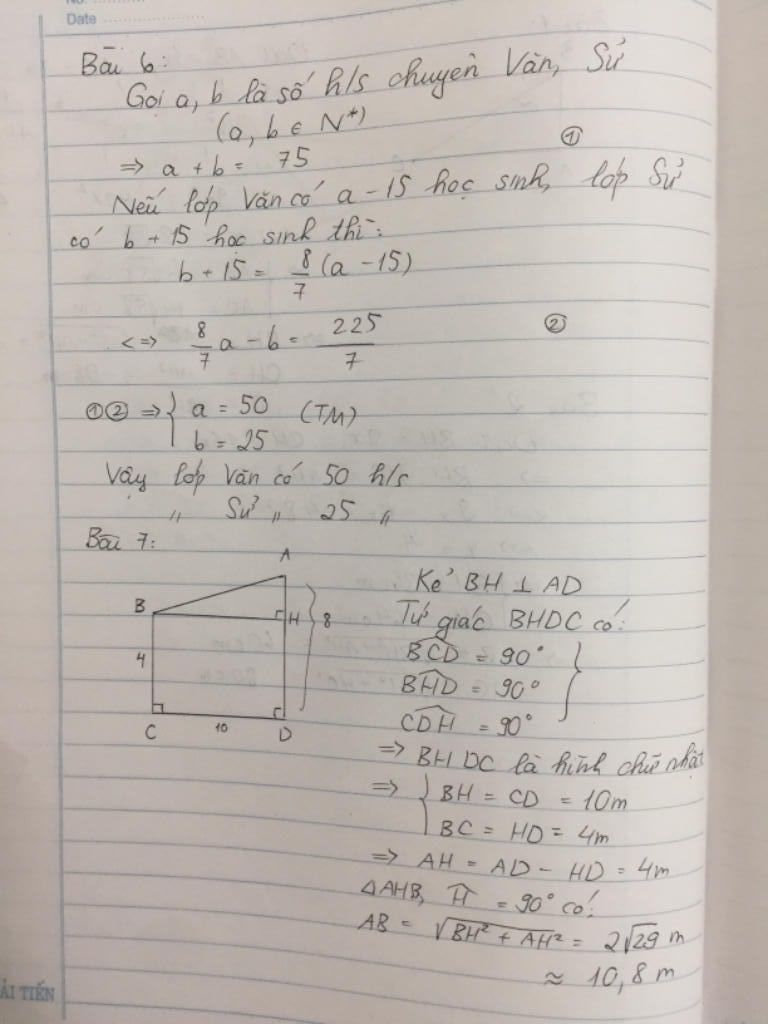 No. ............
Date ....................
Bài 6:
Gọi a, b là số h/s chuyên Văn, Sử
(a, b ∈ N*)
=> a + b = 75 ①
Nếu lớp Văn có a - 15 học sinh, lớp Sử
có b + 15 học sinh thì:
b + 15 = 8/7 (a - 15)
<=> 8/7 a - b = 225/7 ②
①② => { a = 50 (TM)
b = 25
Vậy lớp Văn có 50 h/s
" Sử " 25 "
Bài 7:
A
B
H
8
4
C
10
D
Kẻ BH ⊥ AD
Tứ giác BHDC có:
BCD = 90°
BHD = 90°
CDH = 90°
=> BHDC là hình chữ nhật
=> { BH = CD = 10m
BC = HD = 4m
=> AH = AD - HD = 4m
△AHB, H = 90° có:
AB = √BH² + AH² = 2√29 m
≈ 10,8 m
ẢI TIẾN